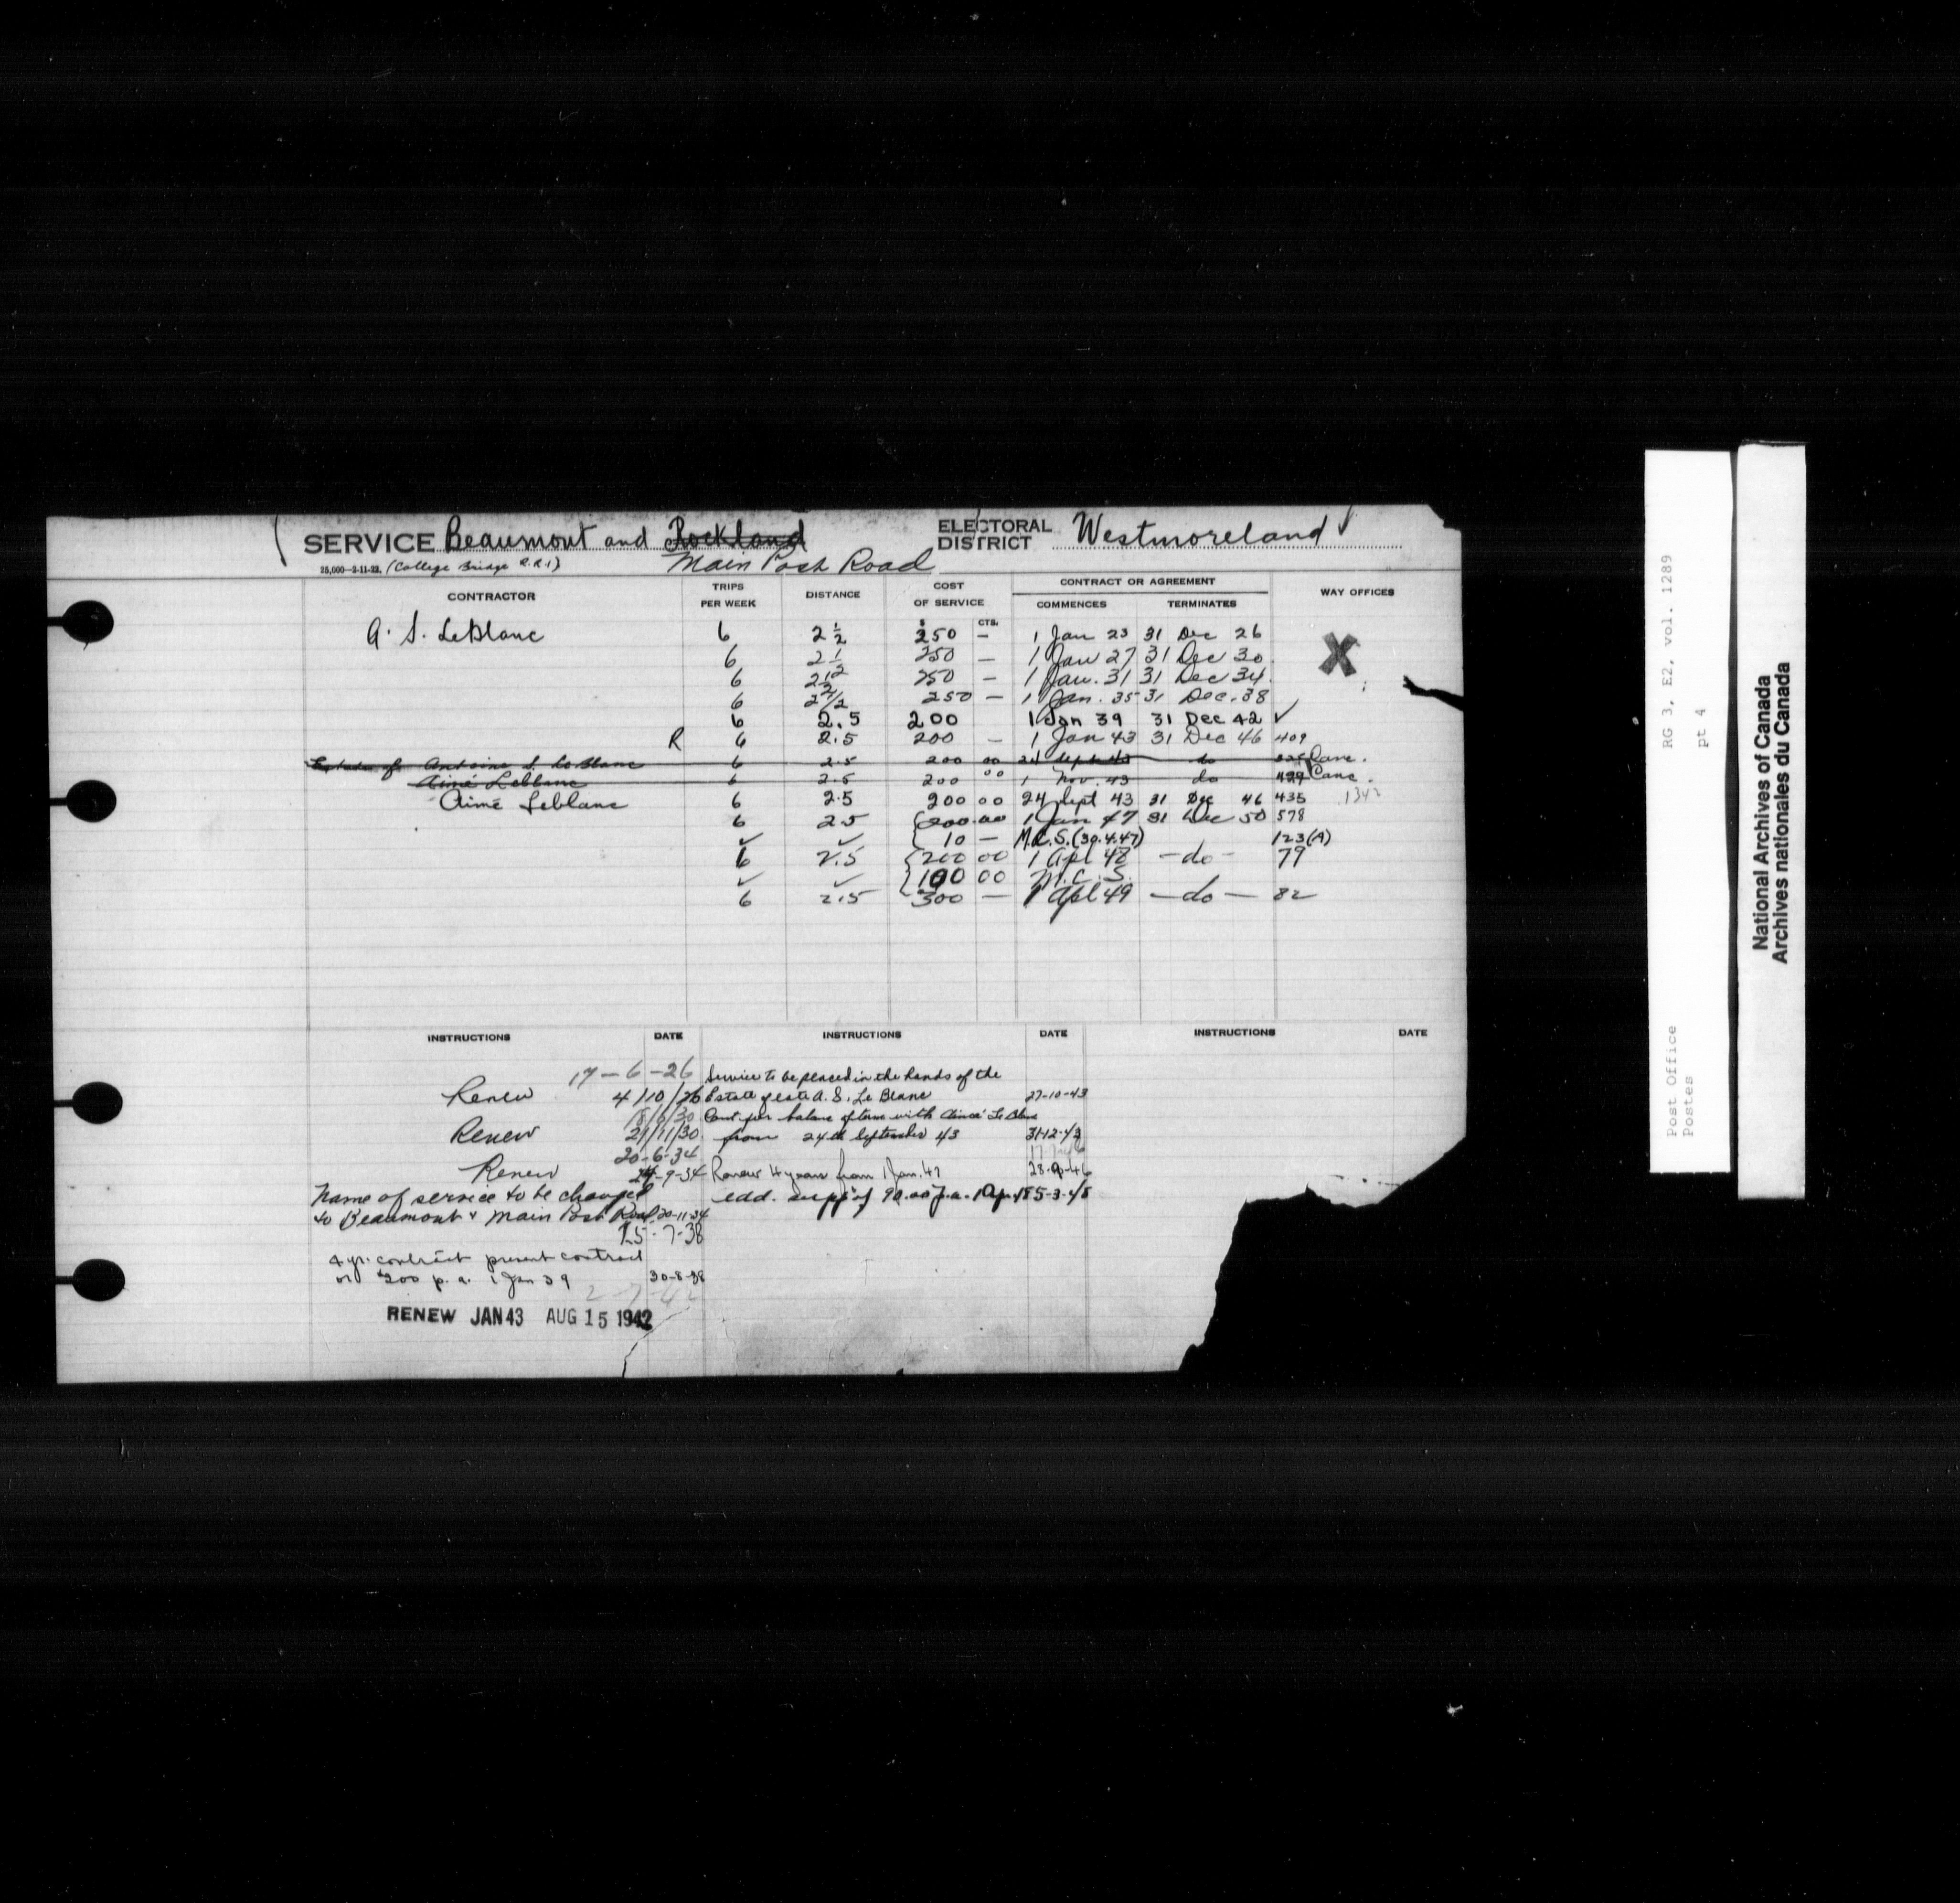 SERVICE Beaumont and Rockland ELECTORAL DISTRICT Westmoreland
25,000—2-11-22. (College Bridge R.R.1) Main Post Road
CONTRACTOR TRIPS PER WEEK DISTANCE COST OF SERVICE CONTRACT OR AGREEMENT COMMENCES TERMINATES WAY OFFICES
$ CTS.
A. S. LeBlanc 6 2 1/2 250 — 1 Jan 23 31 Dec 26 X
6 2 1/2 250 — 1 Jan 27 31 Dec 30
6 2 1/2 250 — 1 Jan. 31 31 Dec 34
6 2 1/2 250 — 1 Jan. 35 31 Dec. 38
6 2.5 200 1 Jan 39 31 Dec 42 ✓
R 6 2.5 200 — 1 Jan 43 31 Dec 46 409
Estate of Antoine S. LeBlanc 6 2.5 200 00 24 Sept 43 do Canc.
Aimé Leblanc 6 2.5 200 00 1 Nov. 43 do 429 Canc.
Aimé Leblanc 6 2.5 200 00 24 Sept 43 31 Dec 46 435 1342
6 2.5 {200.00 1 Jan 47 31 Dec 50 578
✓ ✓ { 10 — M.C.S. (30.4.47) 123(A)
6 2.5 {200 00 1 Apl 48 —do— 79
✓ ✓ {100 00 M.C.S.
6 2.5 300 — 1 Apl 49 —do— 82
INSTRUCTIONS DATE INSTRUCTIONS DATE INSTRUCTIONS DATE
17-6-26
Renew 4/10/26
Renew 21/11/30
20-6-34
Renew 24-9-34
Name of service to be changed
to Beaumont & Main Post Road 20-11-34
15-7-38
4 yr. contract present contract
$200 p. a. 1 Jan 39 30-8-38
2-7-42
RENEW JAN 43 AUG 15 1942
Service to be placed in the hands of the
Estate of late A. S. Le Blanc 27-10-43
Cont. for balance of term with Aimé Le Blanc
from 24th September 43 31-12-43
Renew 4 years from 1 Jan. 47 28-9-46
add. supp of 90.00 p.a. 1 Apr. 48 5-3-48
Post Office RG 3, E2, vol. 1289
Postes pt 4
National Archives of Canada
Archives nationales du Canada